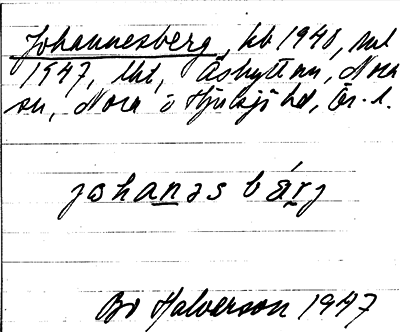 Johannesberg, hb 1940, ml
1947, lht, Åshyttan, Nora
sn, Nora o Hjulsjö hd, Ör. l.
johanəsbárj
Br Halverson 1947